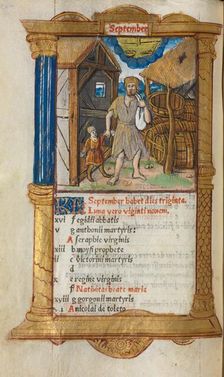 September
September habet dies triginta
Luna vero viginti novem.
xvi f egidii abbatis
v g anthonii martyris:
A seraphie virginis
xiii b moysi prophete
ii c victorini martyris
d
x e regine virginis
f Nativitas beate marie
xviii g gorgonii martyris
A nicolai de toleto